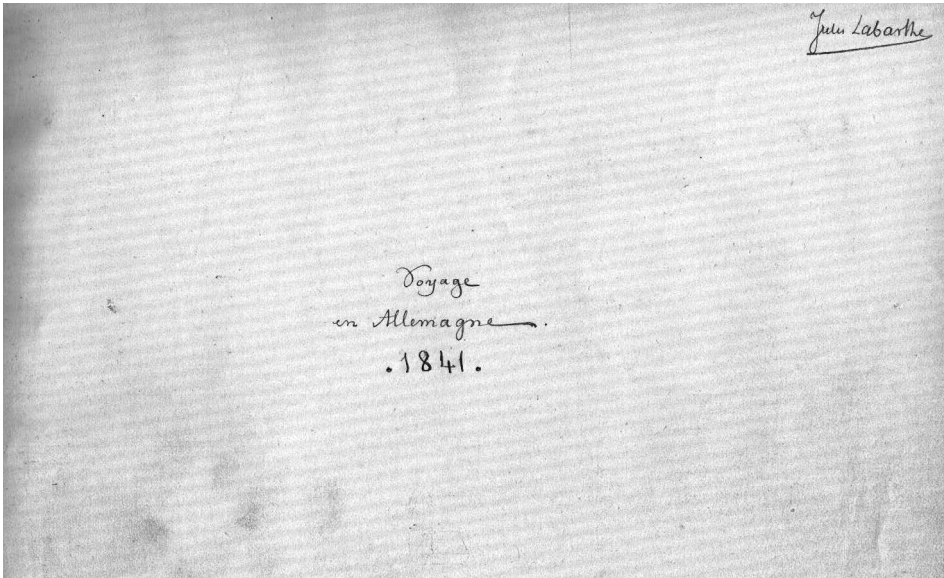 Jules Labarthe
Voyage
en Allemagne .
. 1841 .